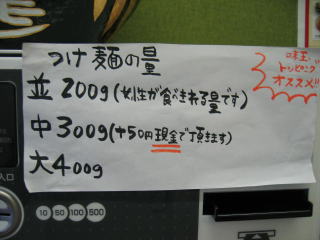 つけ麺の量
並 200g(女性が食べきれる量です)
中 300g(+50円現金で頂きます)
大 400g
味玉
トッピング
オススメ!!
入口
10 50 100 500